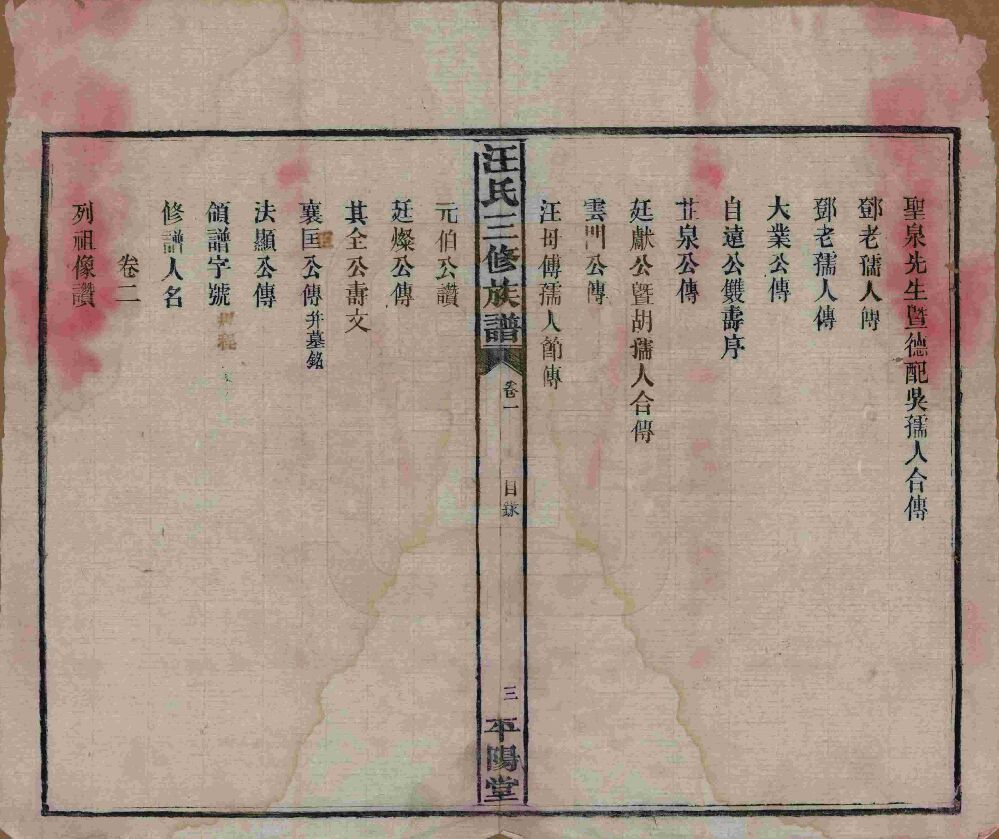 聖泉先生暨德配吳孺人合傳
鄧老孺人傳
鄧老孺人傳
大業公傳
自遠公雙壽序
芷泉公傳
廷獻公暨胡孺人合傳
雲門公傳
汪母傅孺人節傳
汪氏三修族譜
卷一
目錄
三
平陽堂
元伯公讚
廷燦公傳
其全公壽文
襄匡公傳并墓銘
法顯公傳
領譜字號
修譜人名
卷二
列祖像讚